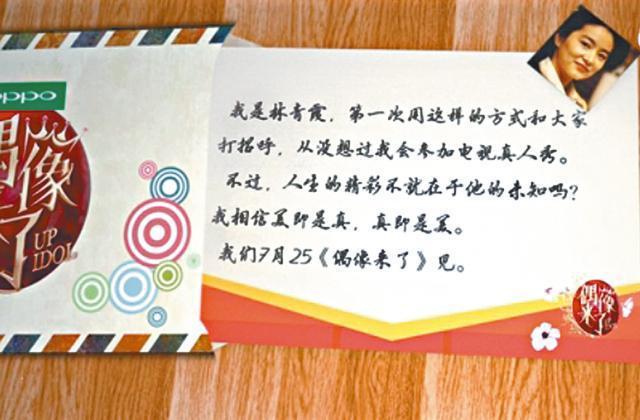 oppo
偶像
来
了
UP
IDOL
我是林青霞，第一次用这样的方式和大家
打招呼，从没想过我会参加电视真人秀。
不过，人生的精彩不就在于他的未知吗？
我相信美即是真，真即是美。
我们7月25《偶像来了》见。
偶像
来了